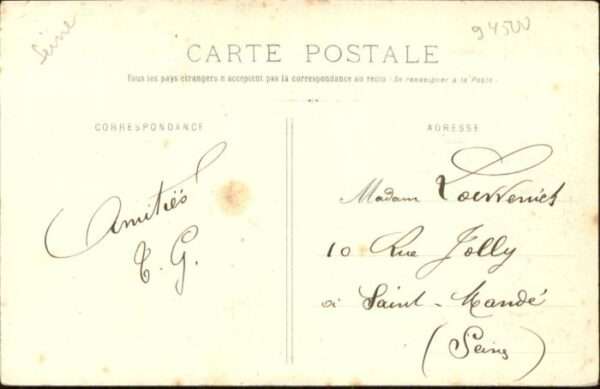 Seine
94500
CARTE POSTALE
Tous les pays étrangers n'acceptent pas la correspondance au recto (Se renseigner à la Poste).
CORRESPONDANCE
Amitiés
T. G.
ADRESSE
Madam
10 Rue Jolly
à Saint-Mandé
(Seine)